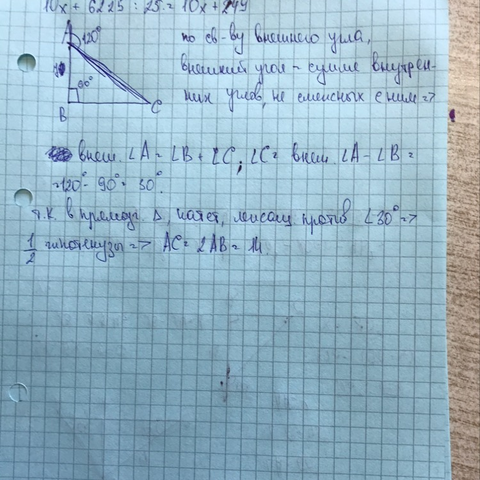 10x + 6225 : 25 = 10x + 249
A 120°
90°
B
C
по св-ву внешнего угла,
внешний угол - сумме внутрен-
них углов, не смежных с ним =>
внеш. ∠A = ∠B + ∠C; ∠C = внеш. ∠A - ∠B =
= 120° - 90° = 30°.
т.к. в прямоуг. Δ катет, лежащ против ∠30° =>
1/2 гипотенузы => AC = 2AB = 14.